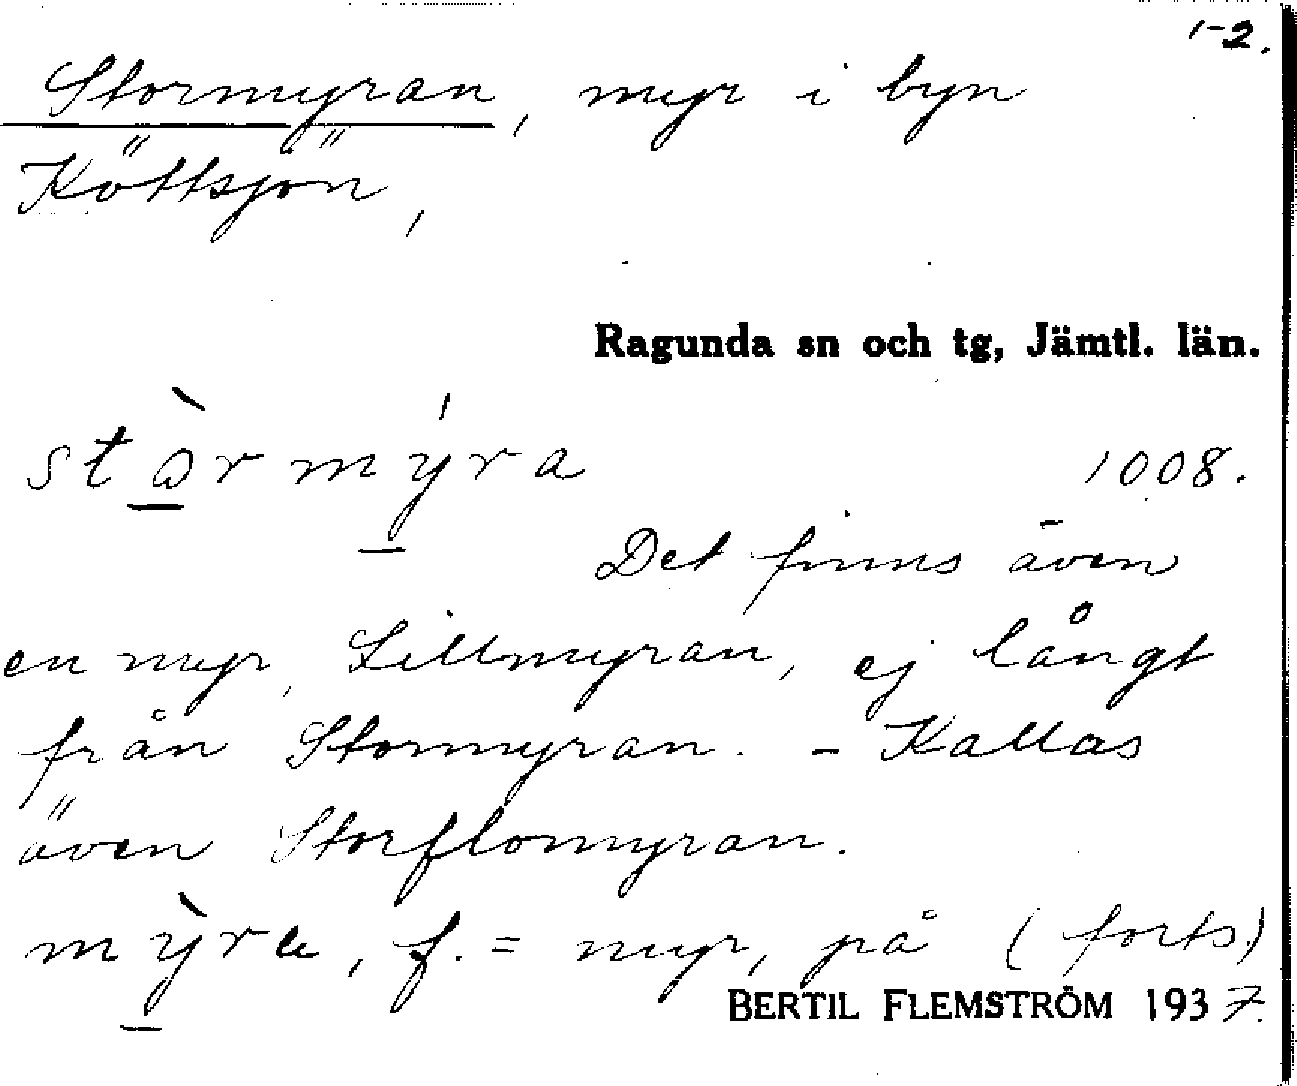 1-2.
Stormyran, myr i byn
Köttsjön,
Ragunda sn och tg, Jämtl. län.
stòrmýra 1008.
Det finns även
en myr, Lillmyran, ej långt
från Stormyran. - Kallas
även Storflomyran.
mỳra, f. = myr, på (forts.)
BERTIL FLEMSTRÖM 1937.